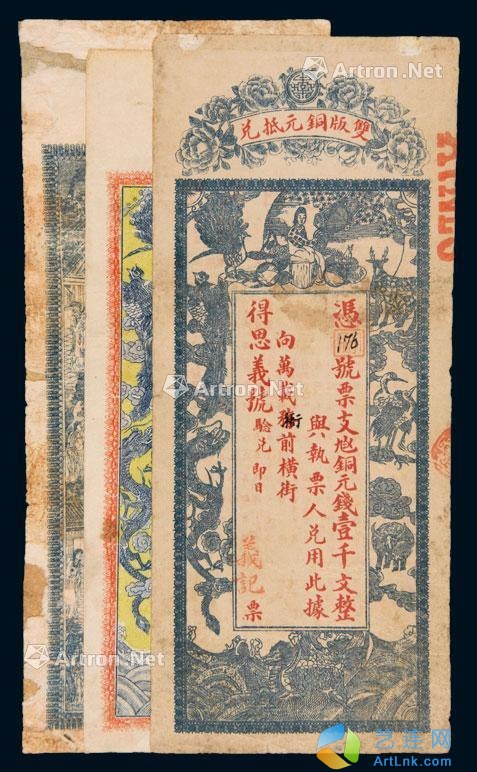 雙版銅元抵兌
憑176號票支尅銅元錢壹千文整
與執票人兌用此據
向萬載前橫街
得思義號驗兌 即日
義記票
Artron.Net
Artron.Net
Artron.Net
Artron.Net
Artron.Net
Artron.Net
艺连网
ArtLnk.com